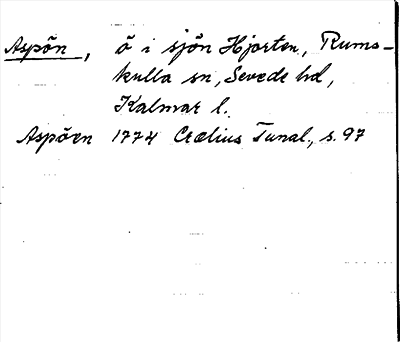 Aspön, ö i sjön Hjorten, Rums-
kulla sn, Sevede hd,
Kalmar l.
Aspöen 1774 Crælius Tunal., s. 97